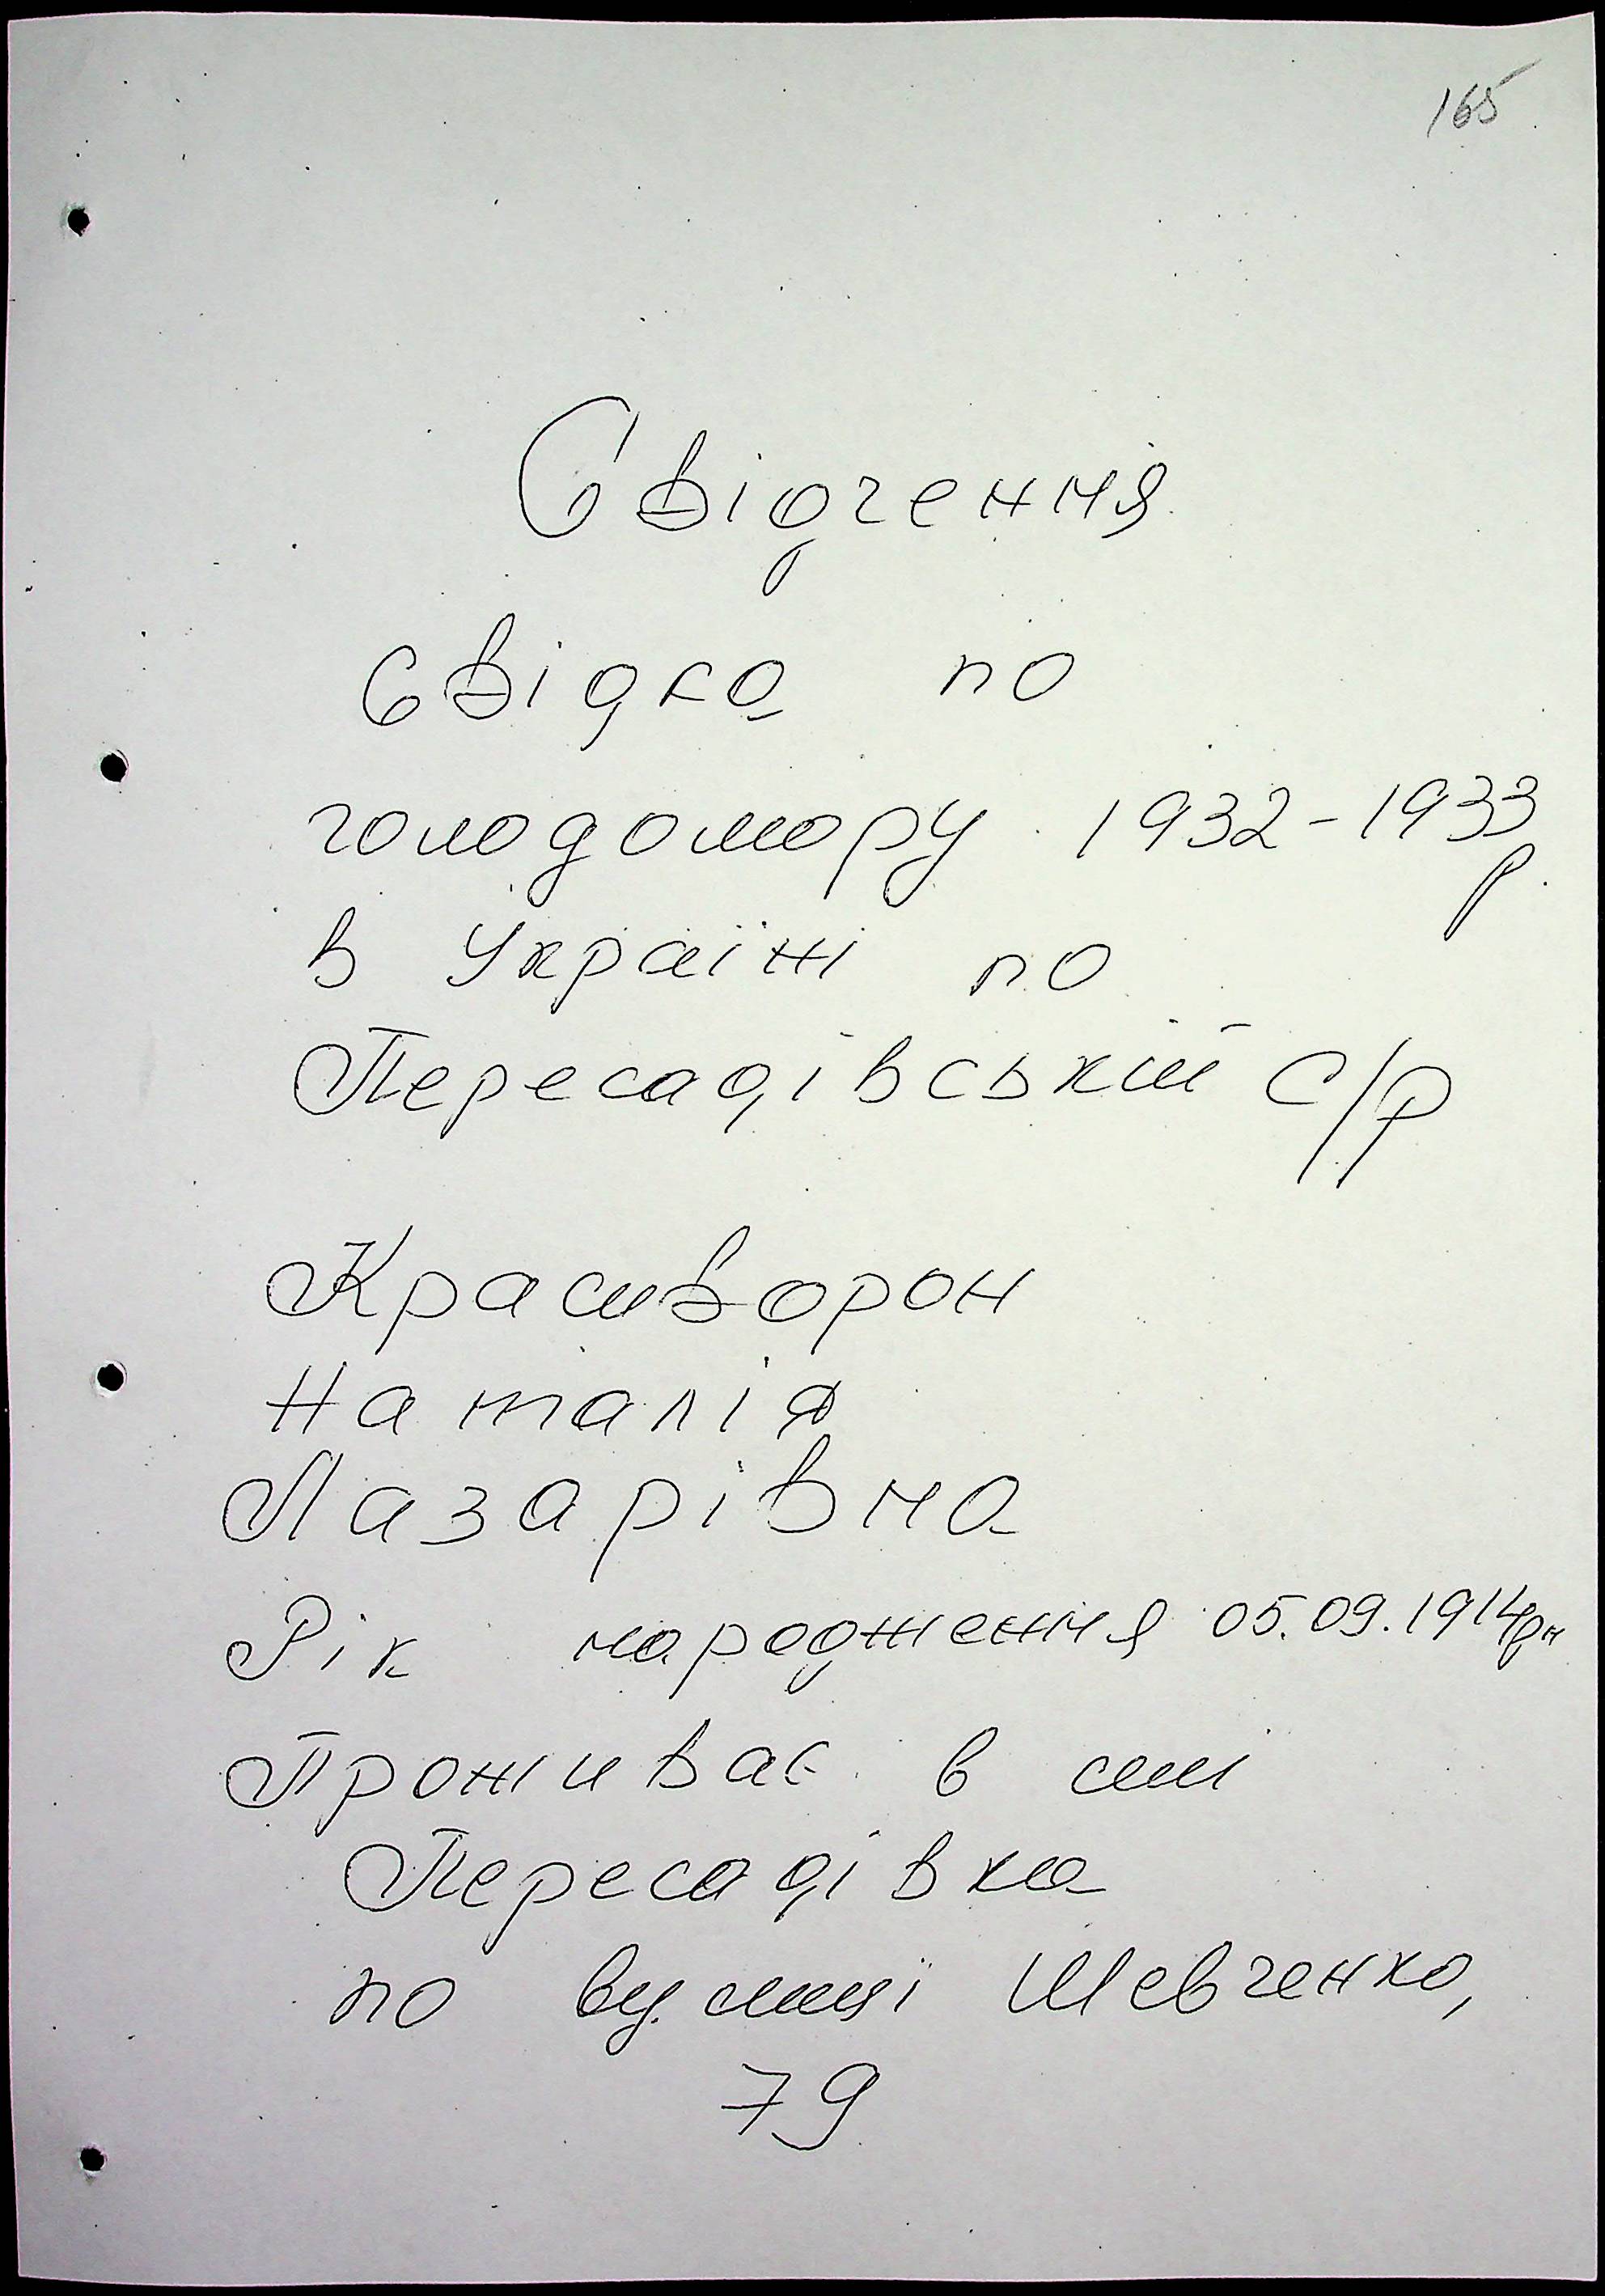 165
Свідчення
свідка по
голодомору 1932-1933
р.
в Україні по
Пересадівській с/р
Красиворон
Наталія
Лазарівна
Рік народження 05.09.1914
Проживає в селі
Пересадівка
по вулиці Шевченко,
79